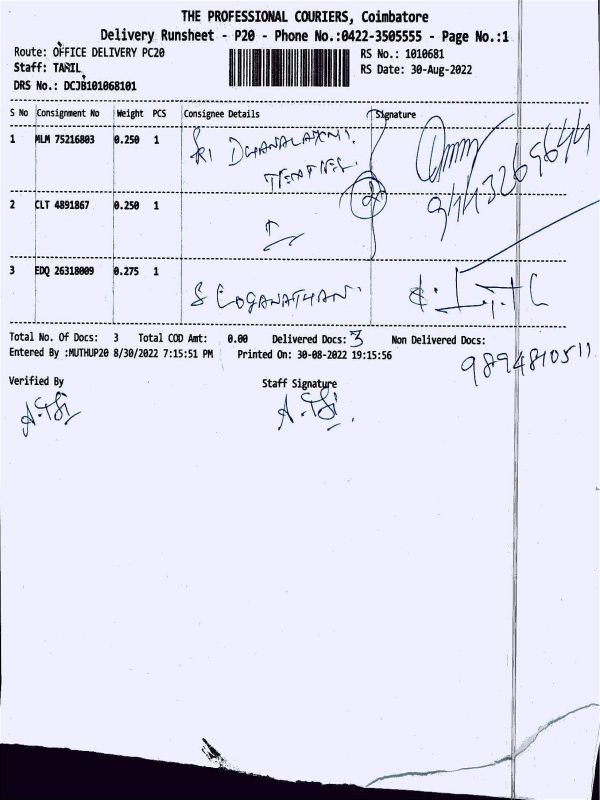 THE PROFESSIONAL COURIERS, Coimbatore
Delivery Runsheet - P20 - Phone No.:0422-3505555 - Page No.:1
Route: OFFICE DELIVERY PC20 RS No.: 1010681
Staff: TAMIL RS Date: 30-Aug-2022
DRS No.: DCJB101068101
S No Consignment No Weight PCS Consignee Details Signature
1 MLM 75216803 0.250 1 SRI DHANALAXMI
2 CLT 4891867 0.250 1
3 EDQ 26318009 0.275 1 S LOGANATHAN
Total No. Of Docs: 3 Total COD Amt: 0.00 Delivered Docs: 3 Non Delivered Docs:
Entered By :MUTHUP20 8/30/2022 7:15:51 PM Printed On: 30-08-2022 19:15:56
9894840511
Verified By Staff Signature